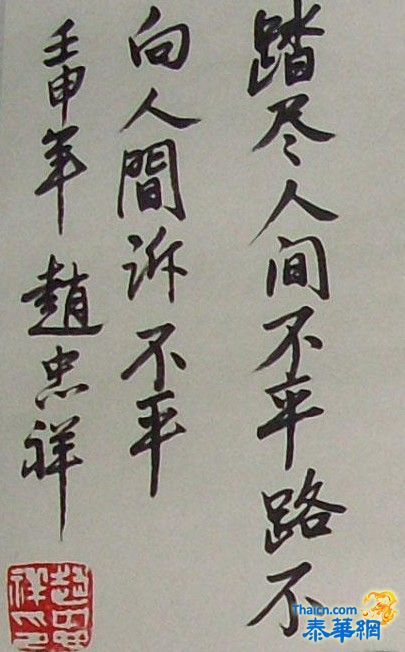 踏尽人间不平路不
向人間訴不平
壬申年 趙忠祥
Thaicn.com
泰華網